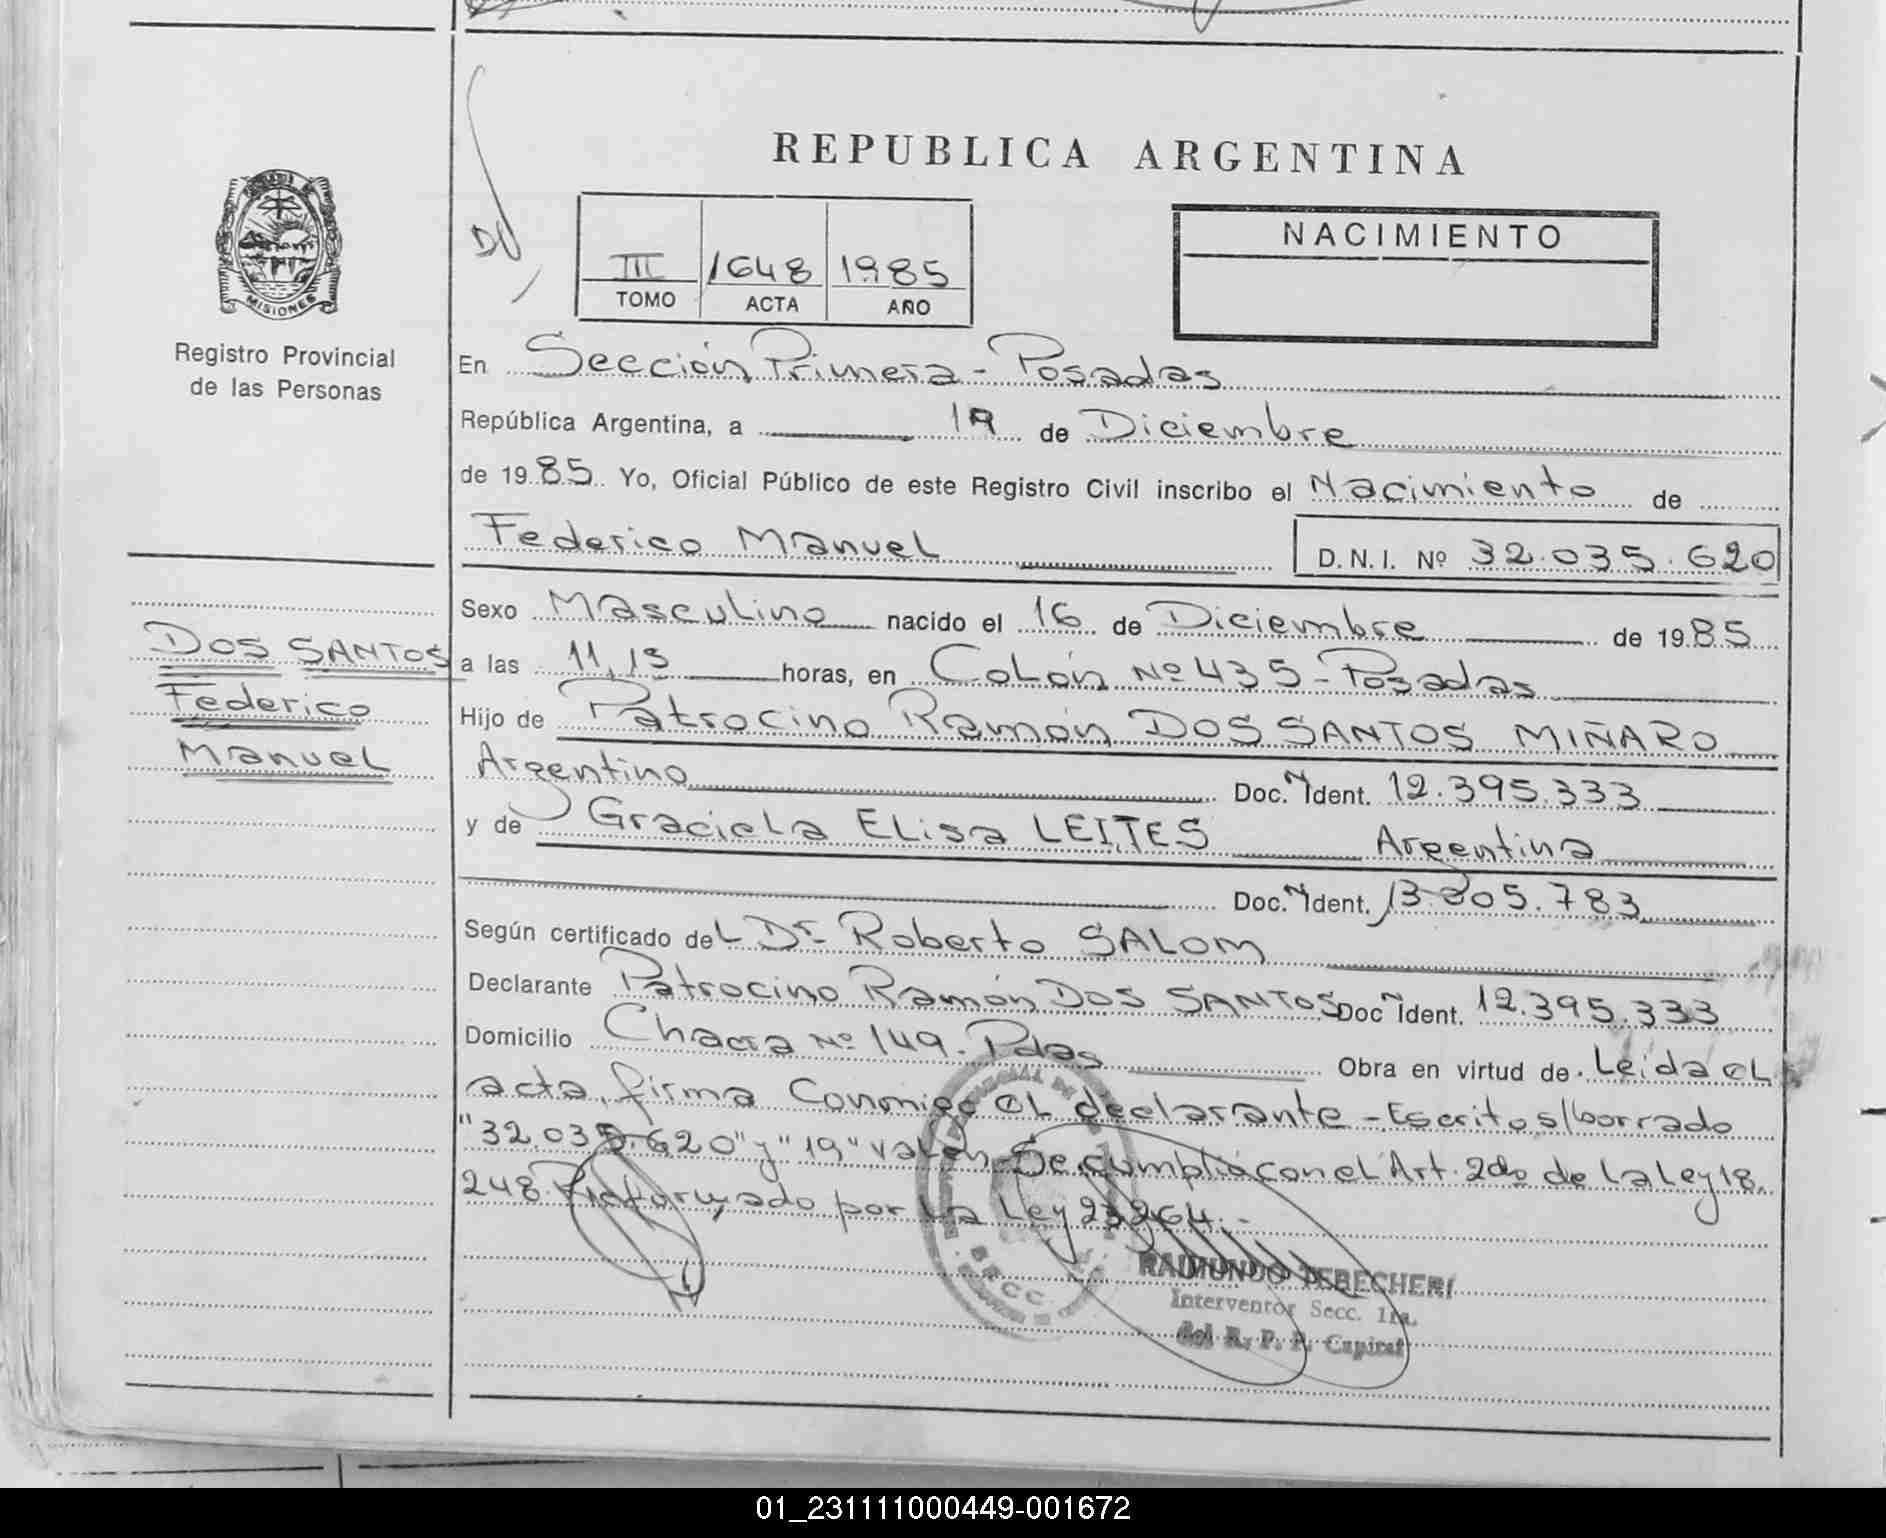 REPUBLICA ARGENTINA
DU
III 1648 1985
TOMO ACTA AÑO
NACIMIENTO
MISIONES
Registro Provincial
de las Personas
En Sección Primera - Posadas
República Argentina, a 19 de Diciembre
de 1985. Yo, Oficial Público de este Registro Civil inscribo el Nacimiento de
Federico Manuel D.N.I. Nº 32.035.620
Sexo Masculino nacido el 16 de Diciembre de 1985
DOS SANTOS
Federico
Manuel
a las 11,15 horas, en Colón Nº 435 - Posadas
Hijo de Patrocino Ramón DOS SANTOS MIÑARO
Argentino Doc. Ident. 12.395.333
y de Graciela Elisa LEITES Argentina
Doc. Ident. 13.805.783
Según certificado del Dr. Roberto SALOM
Declarante Patrocino Ramón DOS SANTOS Doc Ident. 12.395.333
Domicilio Chacra Nº 149. Pdas Obra en virtud de Leida el
acta, firma Conmigo el declarante - Escritos/borrado
"32.035.620" y "19" valen - Se cumplió con el Art. 2do de la Ley 18.
248 por la Ley 23264.-
R.P.P.
S.E.C.C.
RAIMUNDO TEBECHERI
Interventor Secc. 1ra.
del R. P. P. Capital
01_231111000449-001672